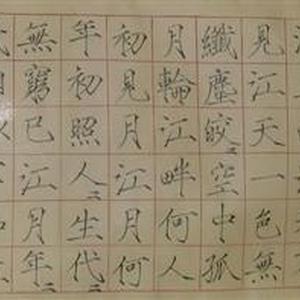 見江天一色無
纖塵皎〻空中孤
月輪江畔何人
初見月江月何
年初照人〻生代〻
無窮已江月年〻